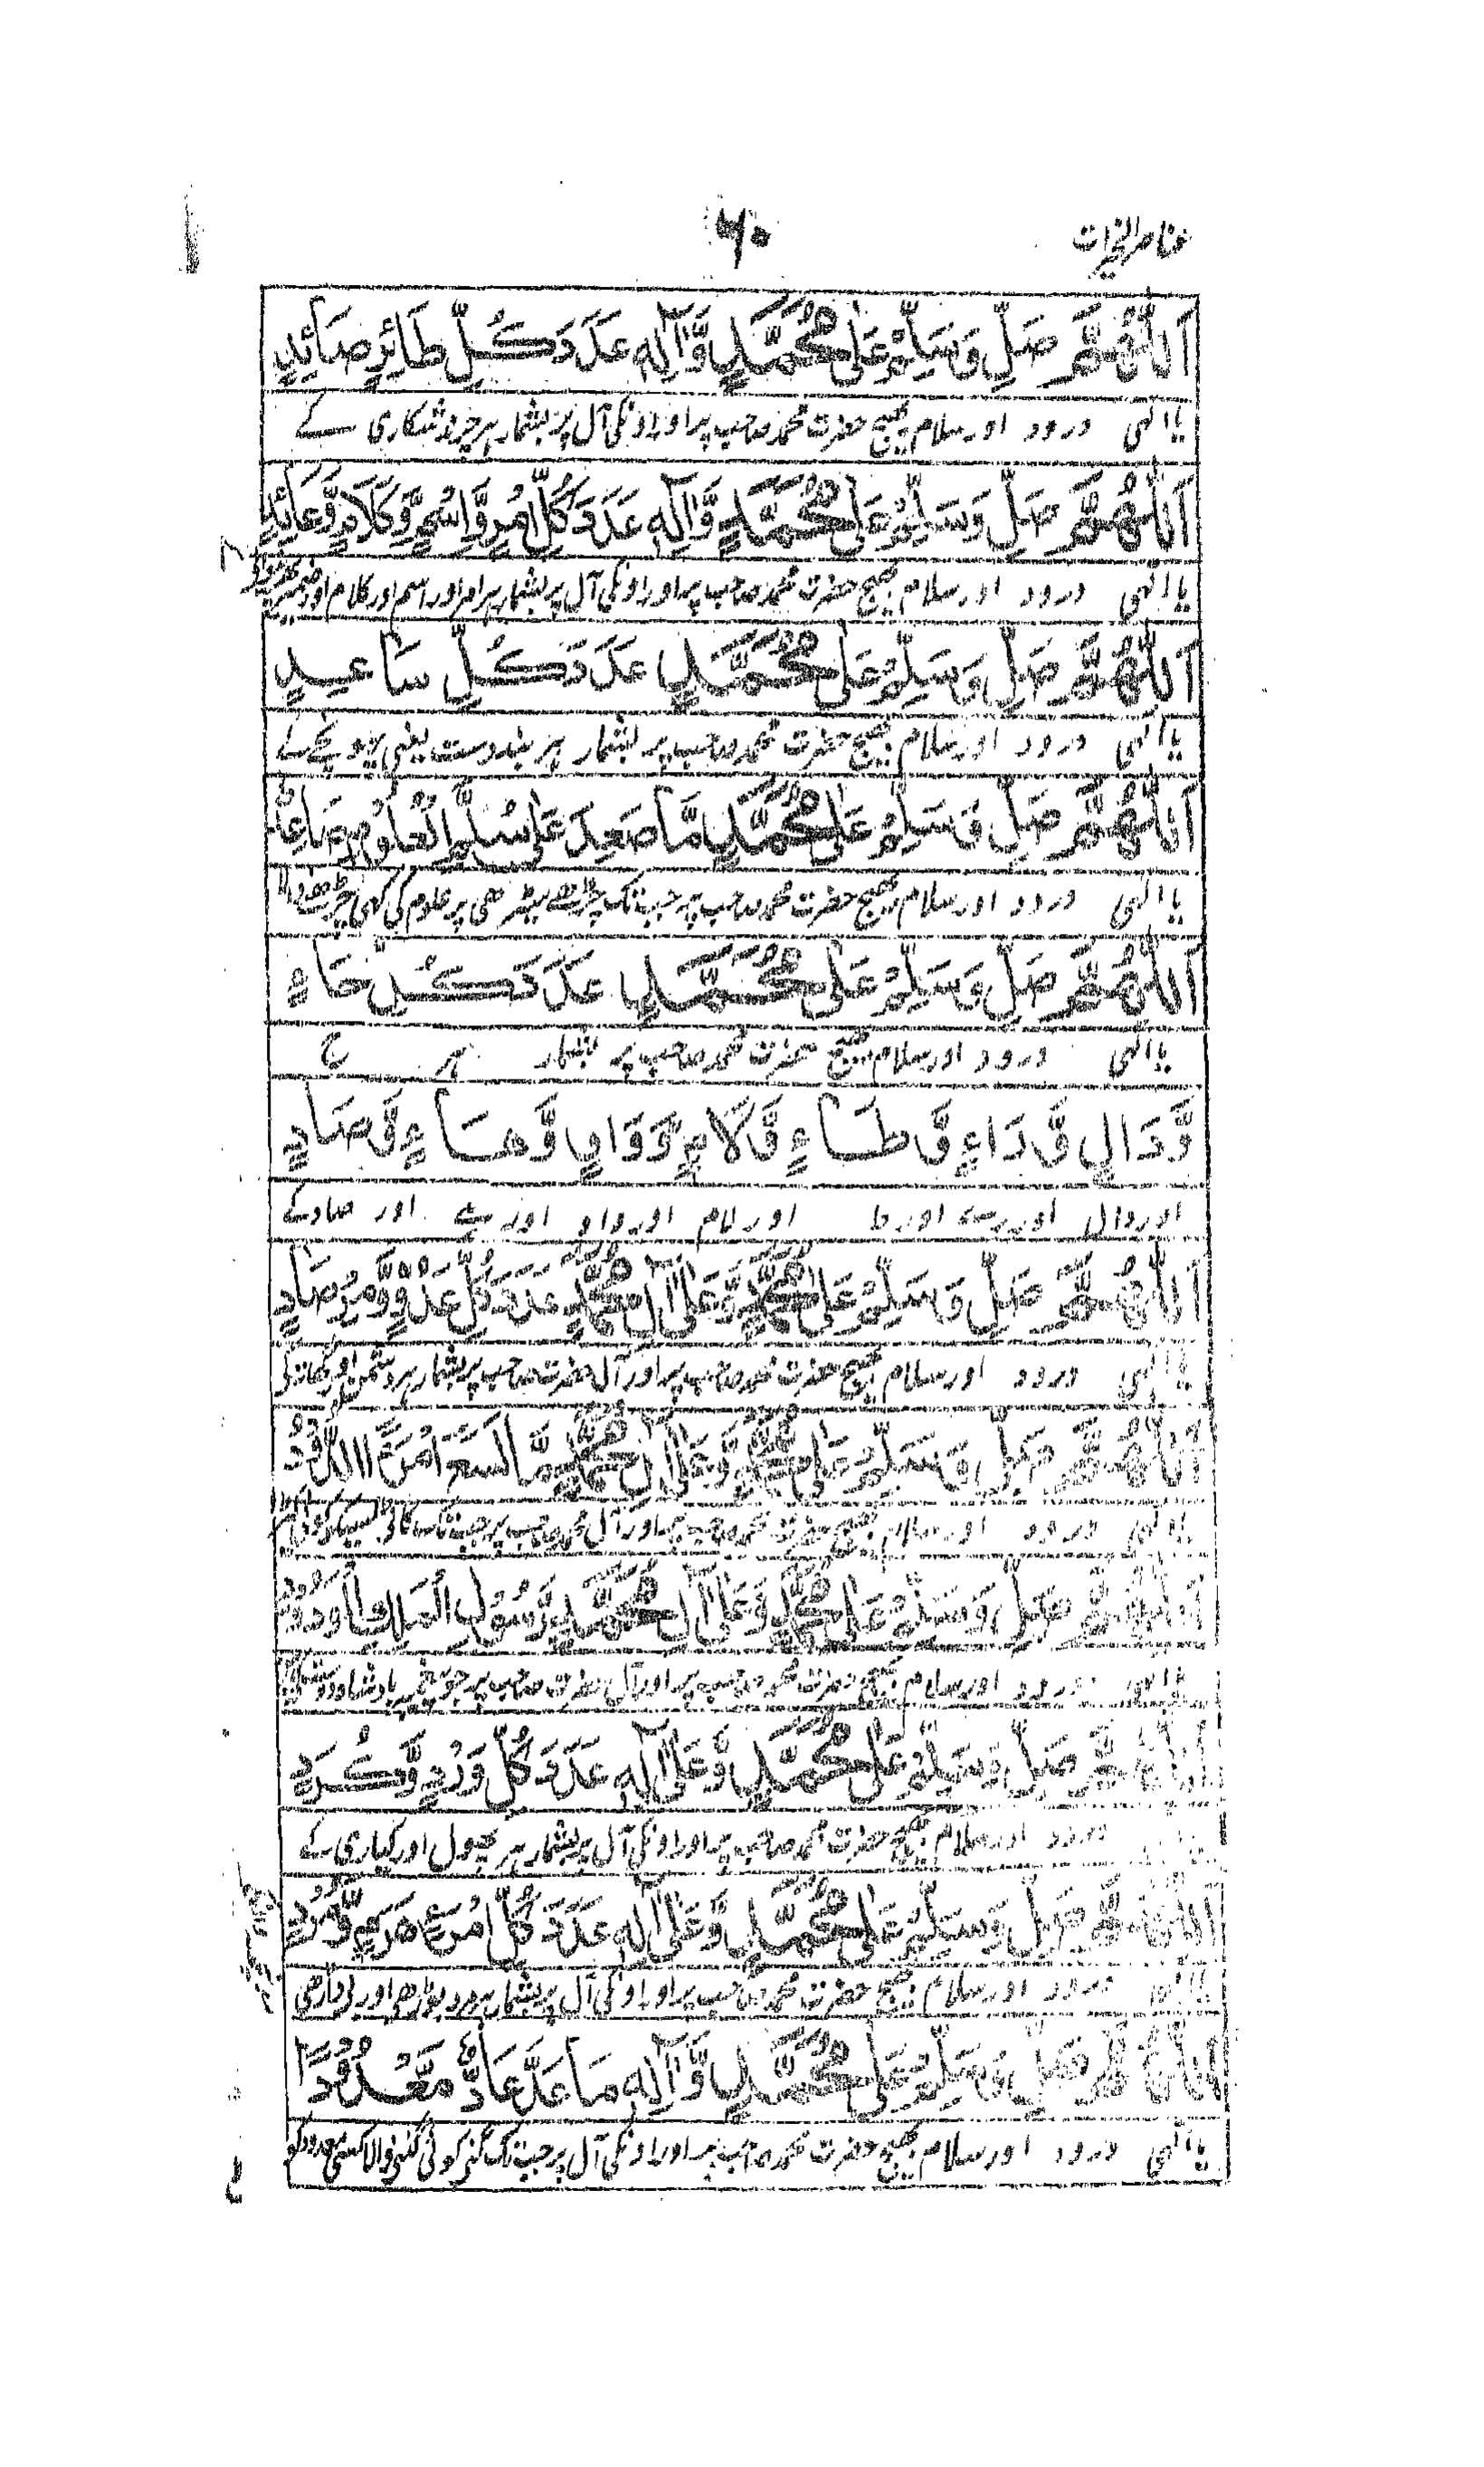 عناصر الخیرات
۶۰
اَللّٰهُمَّ صَلِّ وَسَلِّمْ عَلٰى مُحَمَّدٍ وَّاٰلِهٖ عَدَدَ كُلِّ طَائِرٍ صَائِدٍ
یا الٰہی درود اور سلام بھیج حضرت محمد صاحب پر اور اونکی آل پر بشمار ہر شکاری کے
اَللّٰهُمَّ صَلِّ وَسَلِّمْ عَلٰى مُحَمَّدٍ وَّاٰلِهٖ عَدَدَ كُلِّ اَمْرٍ وَّاسْمٍ وَّكَلَامٍ وَّعَائِدٍ
یا الٰہی درود اور سلام بھیج حضرت محمد صاحب پر اور اونکی آل پر بشمار ہر امر اور اسم اور کلام اور ضمیر
اَللّٰهُمَّ صَلِّ وَسَلِّمْ عَلٰى مُحَمَّدٍ عَدَدَ كُلِّ سَاعِدٍ
یا الٰہی درود اور سلام بھیج حضرت محمد صاحب پر بشمار ہر بند دست یعنی پہونچے کے
اَللّٰهُمَّ صَلِّ وَسَلِّمْ عَلٰى مُحَمَّدٍ مَّا صَعِدَ عَلٰى سُلَّمِ الْعُلُوْمِ صَاعِدٌ
یا الٰہی درود اور سلام بھیج حضرت محمد صاحب پر جب تک چڑھے سیڑھی پر علوم کی کوئی چڑھنے والا
اَللّٰهُمَّ صَلِّ وَسَلِّمْ عَلٰى مُحَمَّدٍ عَدَدَ كُلِّ حَاءٍ
یا الٰہی درود اور سلام بھیج حضرت محمد صاحب پر بشمار ہر ح
وَّدَالٍ وَّرَاءٍ وَّطَاءٍ وَّلَامٍ وَّوَاوٍ وَّهَاءٍ وَّصَادٍ
اور دال اور رے اور ط اور لام اور واو اور ہے اور صاد کے
اَللّٰهُمَّ صَلِّ وَسَلِّمْ عَلٰى مُحَمَّدٍ وَّعَلٰى اٰلِ مُحَمَّدٍ عَدَدَ كُلِّ عَدُوٍّ وَّمِرْصَادٍ
یا الٰہی درود اور سلام بھیج حضرت محمد صاحب پر اور آل حضرت صاحب پر بشمار ہر دشمن اور
اَللّٰهُمَّ صَلِّ وَسَلِّمْ عَلٰى مُحَمَّدٍ وَّعَلٰى اٰلِ مُحَمَّدٍ مَّا لَسَعَ
یا الٰہی درود اور سلام بھیج حضرت محمد صاحب پر اور آل محمد صاحب پر جب تک
اَللّٰهُمَّ صَلِّ وَسَلِّمْ عَلٰى مُحَمَّدٍ وَّعَلٰى اٰلِ مُحَمَّدٍ رَّسُوْلِ الْمَلِكِ الْوَدُوْدِ
یا الٰہی درود اور سلام بھیج حضرت محمد صاحب پر اور آل حضرت صاحب پر جو
اَللّٰهُمَّ صَلِّ وَسَلِّمْ عَلٰى مُحَمَّدٍ وَّعَلٰى اٰلِهٖ عَدَدَ كُلِّ وَرْدٍ وَّكُرْدٍ
درود اور سلام بھیج حضرت محمد صاحب پر اور اونکی آل پر بشمار ہر پھول اور کیاری کے
اَللّٰهُمَّ صَلِّ وَسَلِّمْ عَلٰى مُحَمَّدٍ وَّعَلٰى اٰلِهٖ عَدَدَ كُلِّ امْرَءٍ هَرِمٍ وَّمُرْدٍ
درود اور سلام بھیج حضرت محمد صاحب پر اور اونکی آل پر بشمار ہر مرد بوڑھی اور
اَللّٰهُمَّ صَلِّ وَسَلِّمْ عَلٰى مُحَمَّدٍ وَّاٰلِهٖ مَا عَدَّ عَادٌّ مَّعْدُوْدًا
یا الٰہی درود اور سلام بھیج حضرت محمد صاحب پر اور اونکی آل پر جب تک گنے کوئی گننے والا کسی معدود کو